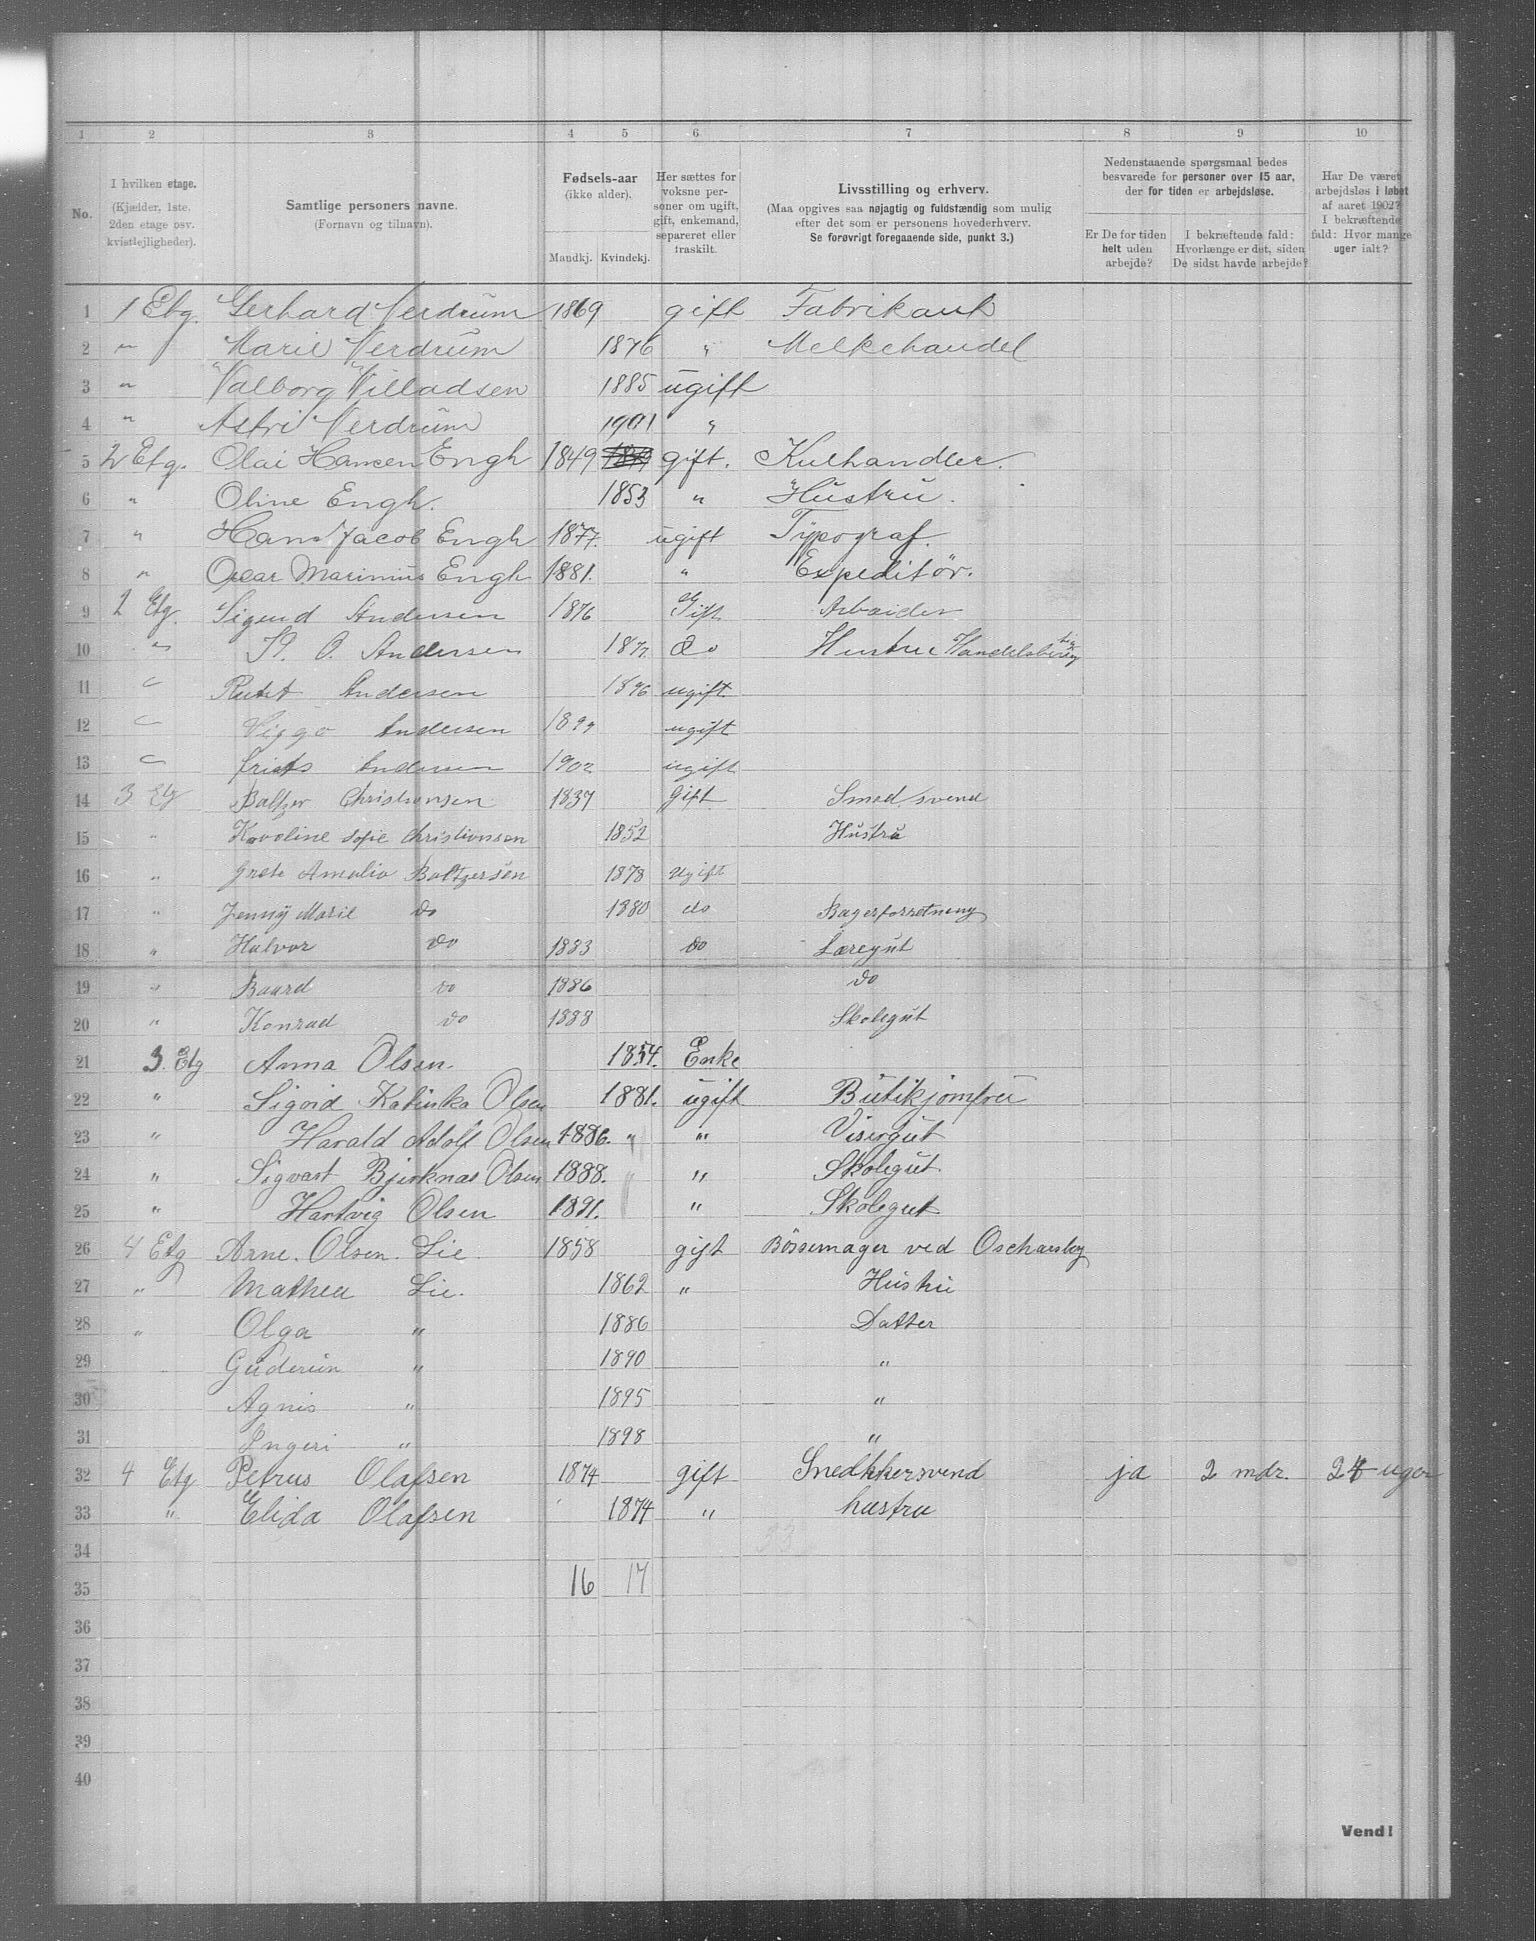 1 2 3 4 5 6 7 8 9 10
No.
I hvilken etage.
(Kjælder, 1ste,
2den etage osv.
kvistlejligheder).
Samtlige personers navne.
(Fornavn og tilnavn).
Fødsels-aar
(ikke alder).
Mandkj. Kvindekj.
Her sættes for
voksne per-
soner om ugift,
gift, enkemand,
separeret eller
fraskilt.
Livsstilling og erhverv.
(Maa opgives saa nøjagtig og fuldstændig som mulig
efter det som er personens hovederhverv.
Se forøvrigt foregaaende side, punkt 3.)
Nedenstaaende spørgsmaal bedes
besvarede for personer over 15 aar,
der for tiden er arbejdsløse.
Er De for tiden
helt uden
arbejde?
I bekræftende fald:
Hvorlænge er det, siden
De sidst havde arbejde?
Har De været
arbejdsløs i løbet
af aaret 1902?
I bekræftende
fald: Hvor mange
uger ialt?
1 1 Etg. Gerhard Verdrum 1869 gift Fabrikant
2 " Marie Verdrum 1876 " Melkehandel
3 " Valborg Villadsen 1885 ugift
4 " Astri Verdrum 1901 "
5 2 Etg. Olai Hansen Engh 1849 gift. Kulhandler.
6 " Oline Engh. 1853 " Hustru.
7 " Hans Jacob Engh 1877. ugift Typograf.
8 " Oscar Marinius Engh 1881. " Expeditör.
9 2 Etg. Sigurd Andersen 1876 Gift Arbeider
10 " O. Andersen do Hustru
11 " Andersen 1896 ugift
12 " Viggo Andersen 1899 ugift
13 " frits Andersen 1902 ugift
14 3 Etg Baltzer Christiansen 1837 Gift Smedsvend
15 " Karoline Sofie Christiansen 1852 Hustru
16 " Grete Amalia Baltzersen 1878 Ugift
17 " Jenny Marie do 1880 do Bagerforretning
18 " Halvor do 1883 do Læregut
19 " Baard do 1886 do
20 " Konrad do 1888 Skolegut
21 3. Etg Anna Olsen. 1854. Enke
22 " Sigrid Katinka Olsen 1881. ugift Butikjomfru
23 " Harald Adolf Olsen 1886. " " Visergut
24 " Sigvart Bjerknas Olsen 1888. " Skolegut
25 " Hartvig Olsen 1891. " Skolegut
26 4 Etg Arne. Olsen. Lie 1858 gift Bössemager ved Oscharsbg
27 " Mathea Lie. 1862 " Hustru
28 " Olga " 1886 Datter
29 Guderun " 1890 "
30 Agnis " 1895 "
31 Ingeri " 1898 "
32 4 Etg Petrus Olafsen 1874 gift Snedkkersvend ja 2 mdr. 24 uger
33 " Elida Olafsen 1874 " hustru
34 33
35 16 17
36
37
38
39
40
Vend!